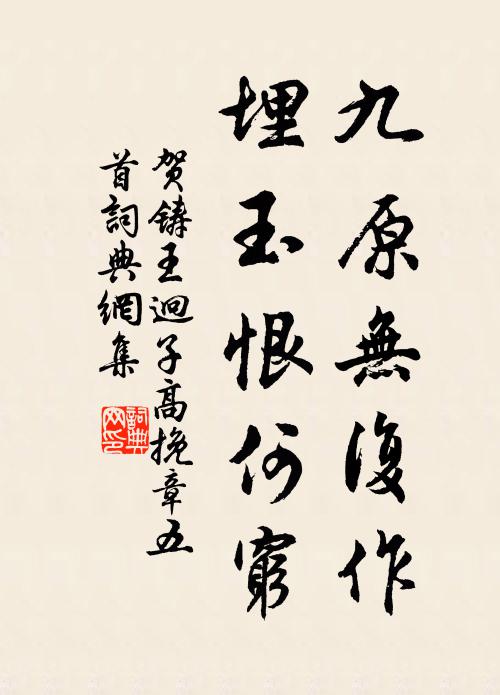 九原無復作
埋玉恨何窮
賀鑄王迥子高挽章五
首詞典網集
詞典
网印